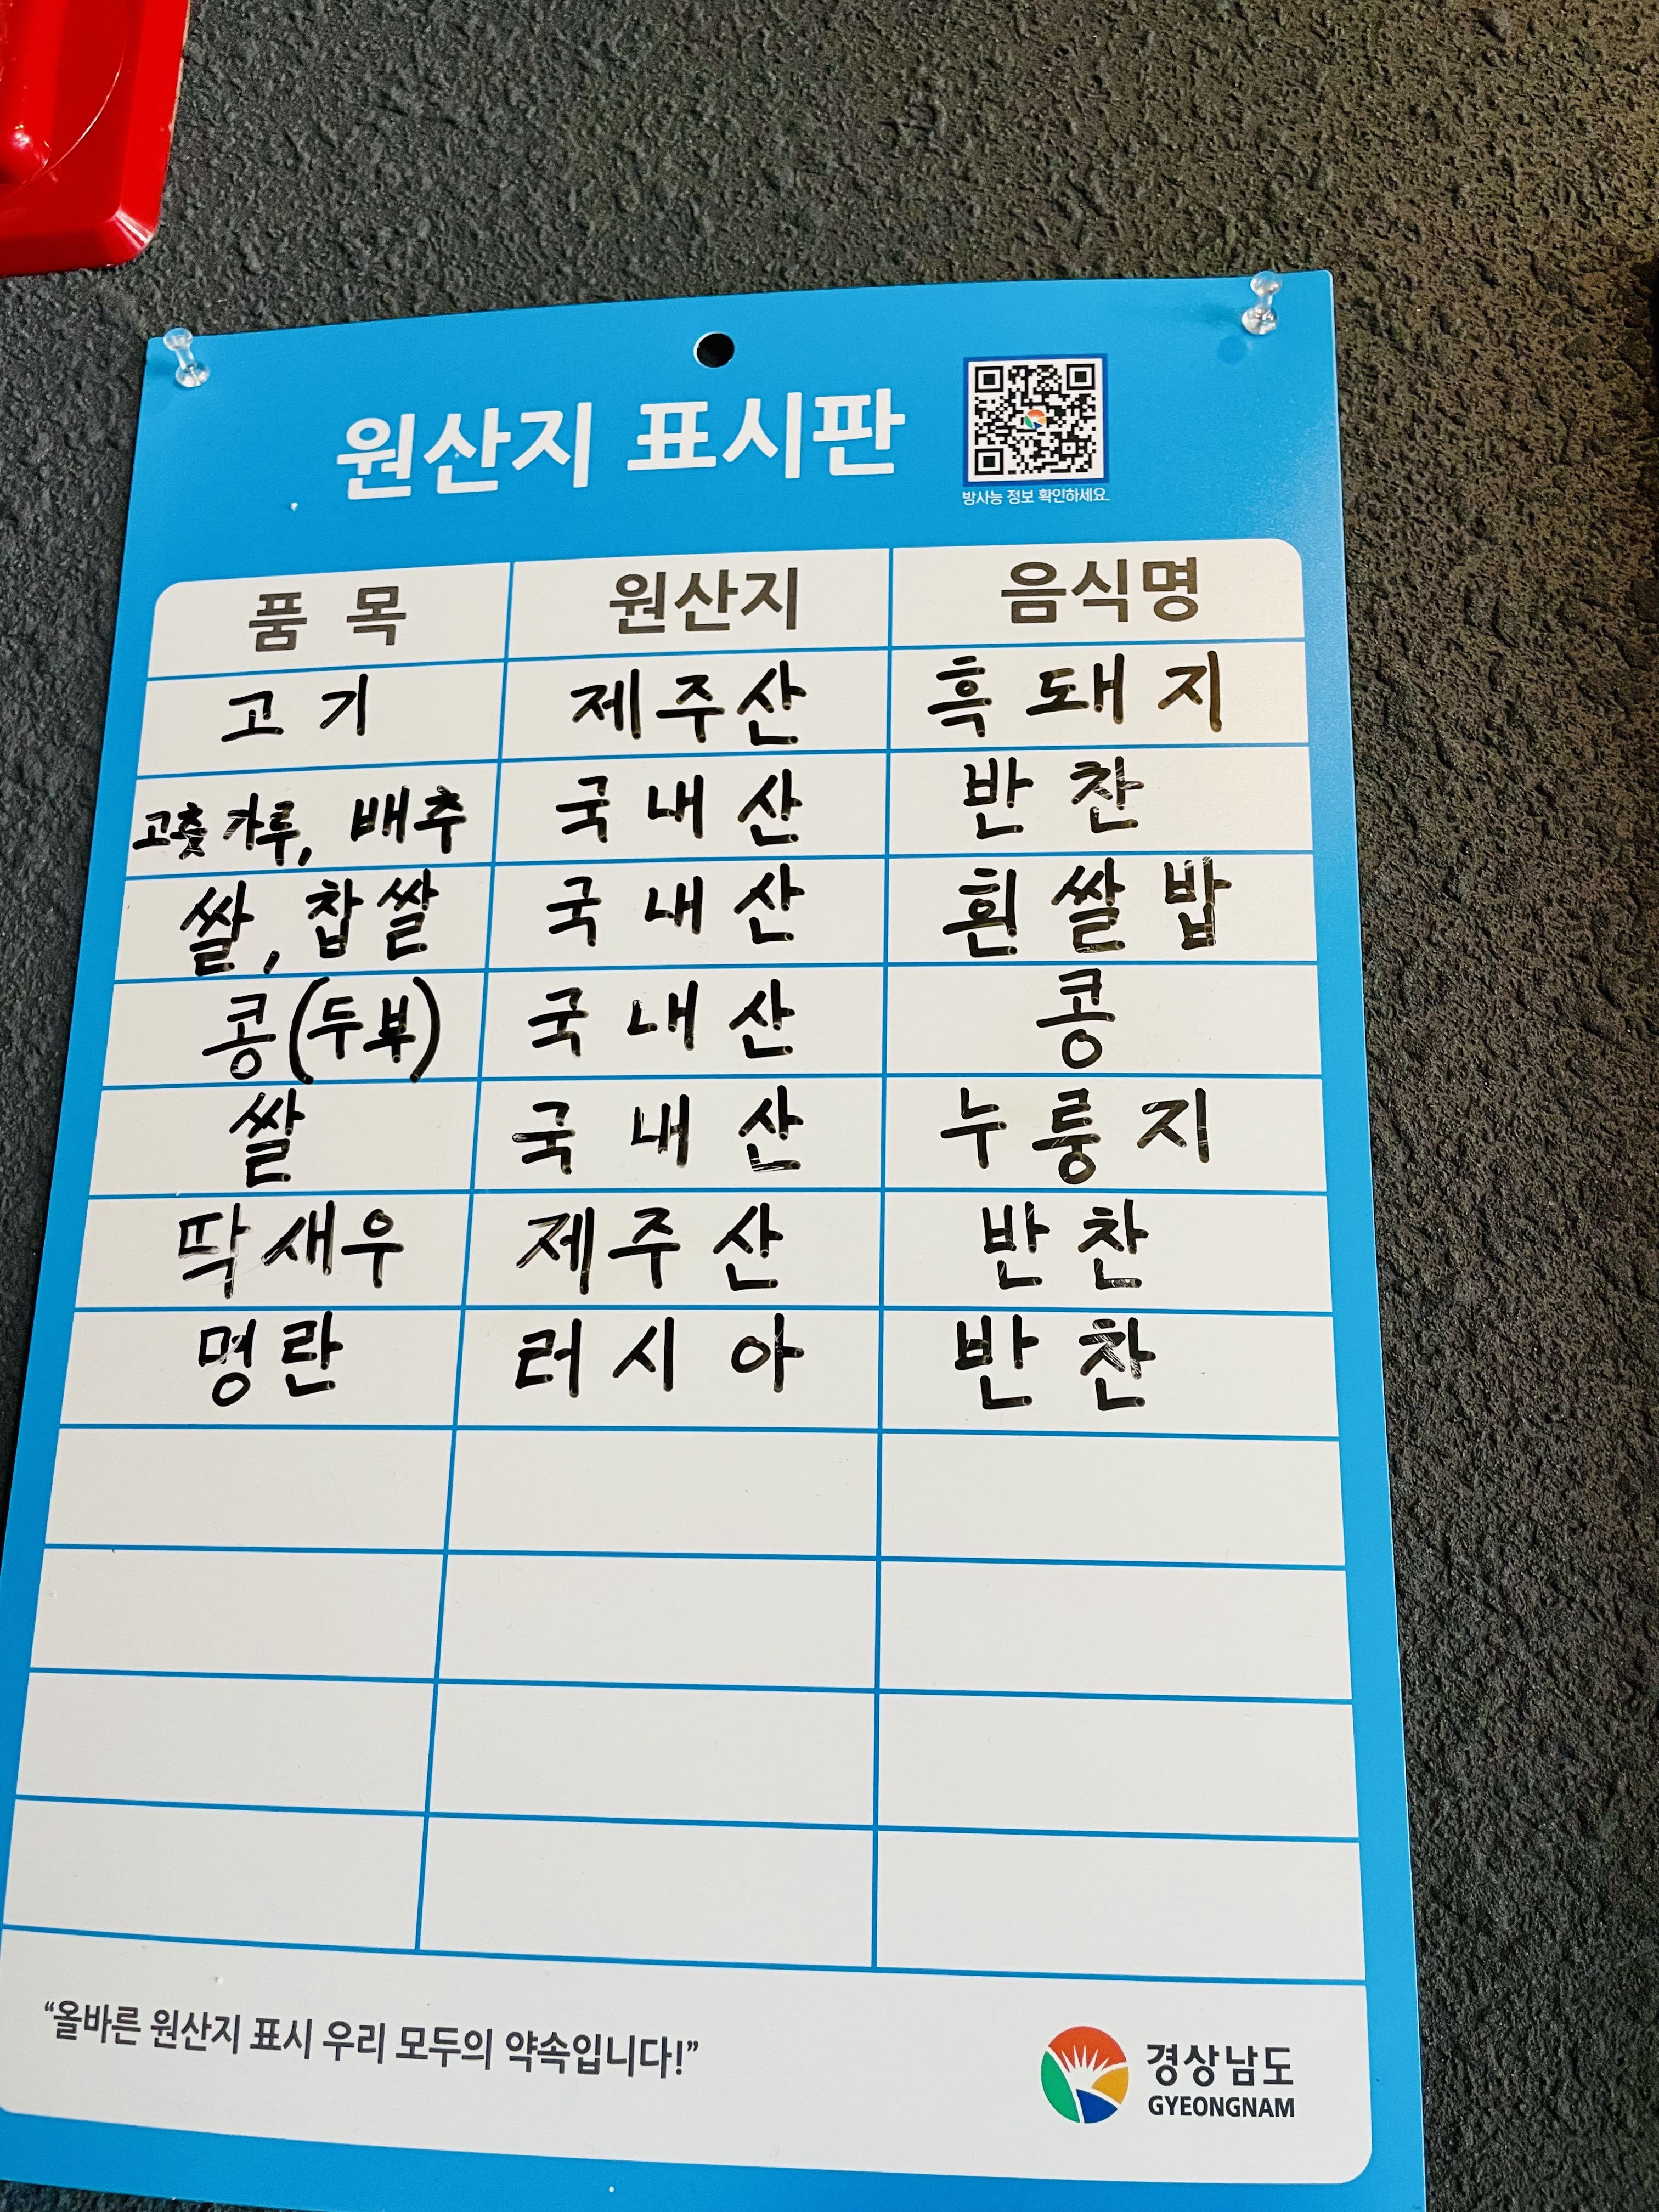 원산지 표시판
방사능 정보 확인하세요.
품 목 원산지 음식명
고기 제주산 흑돼지
고춧가루, 배추 국내산 반찬
쌀, 찹쌀 국내산 흰쌀밥
콩(두부) 국내산 콩
쌀 국내산 누룽지
딱새우 제주산 반찬
명란 러시아 반찬
“올바른 원산지 표시 우리 모두의 약속입니다!”
경상남도
GYEONGNAM